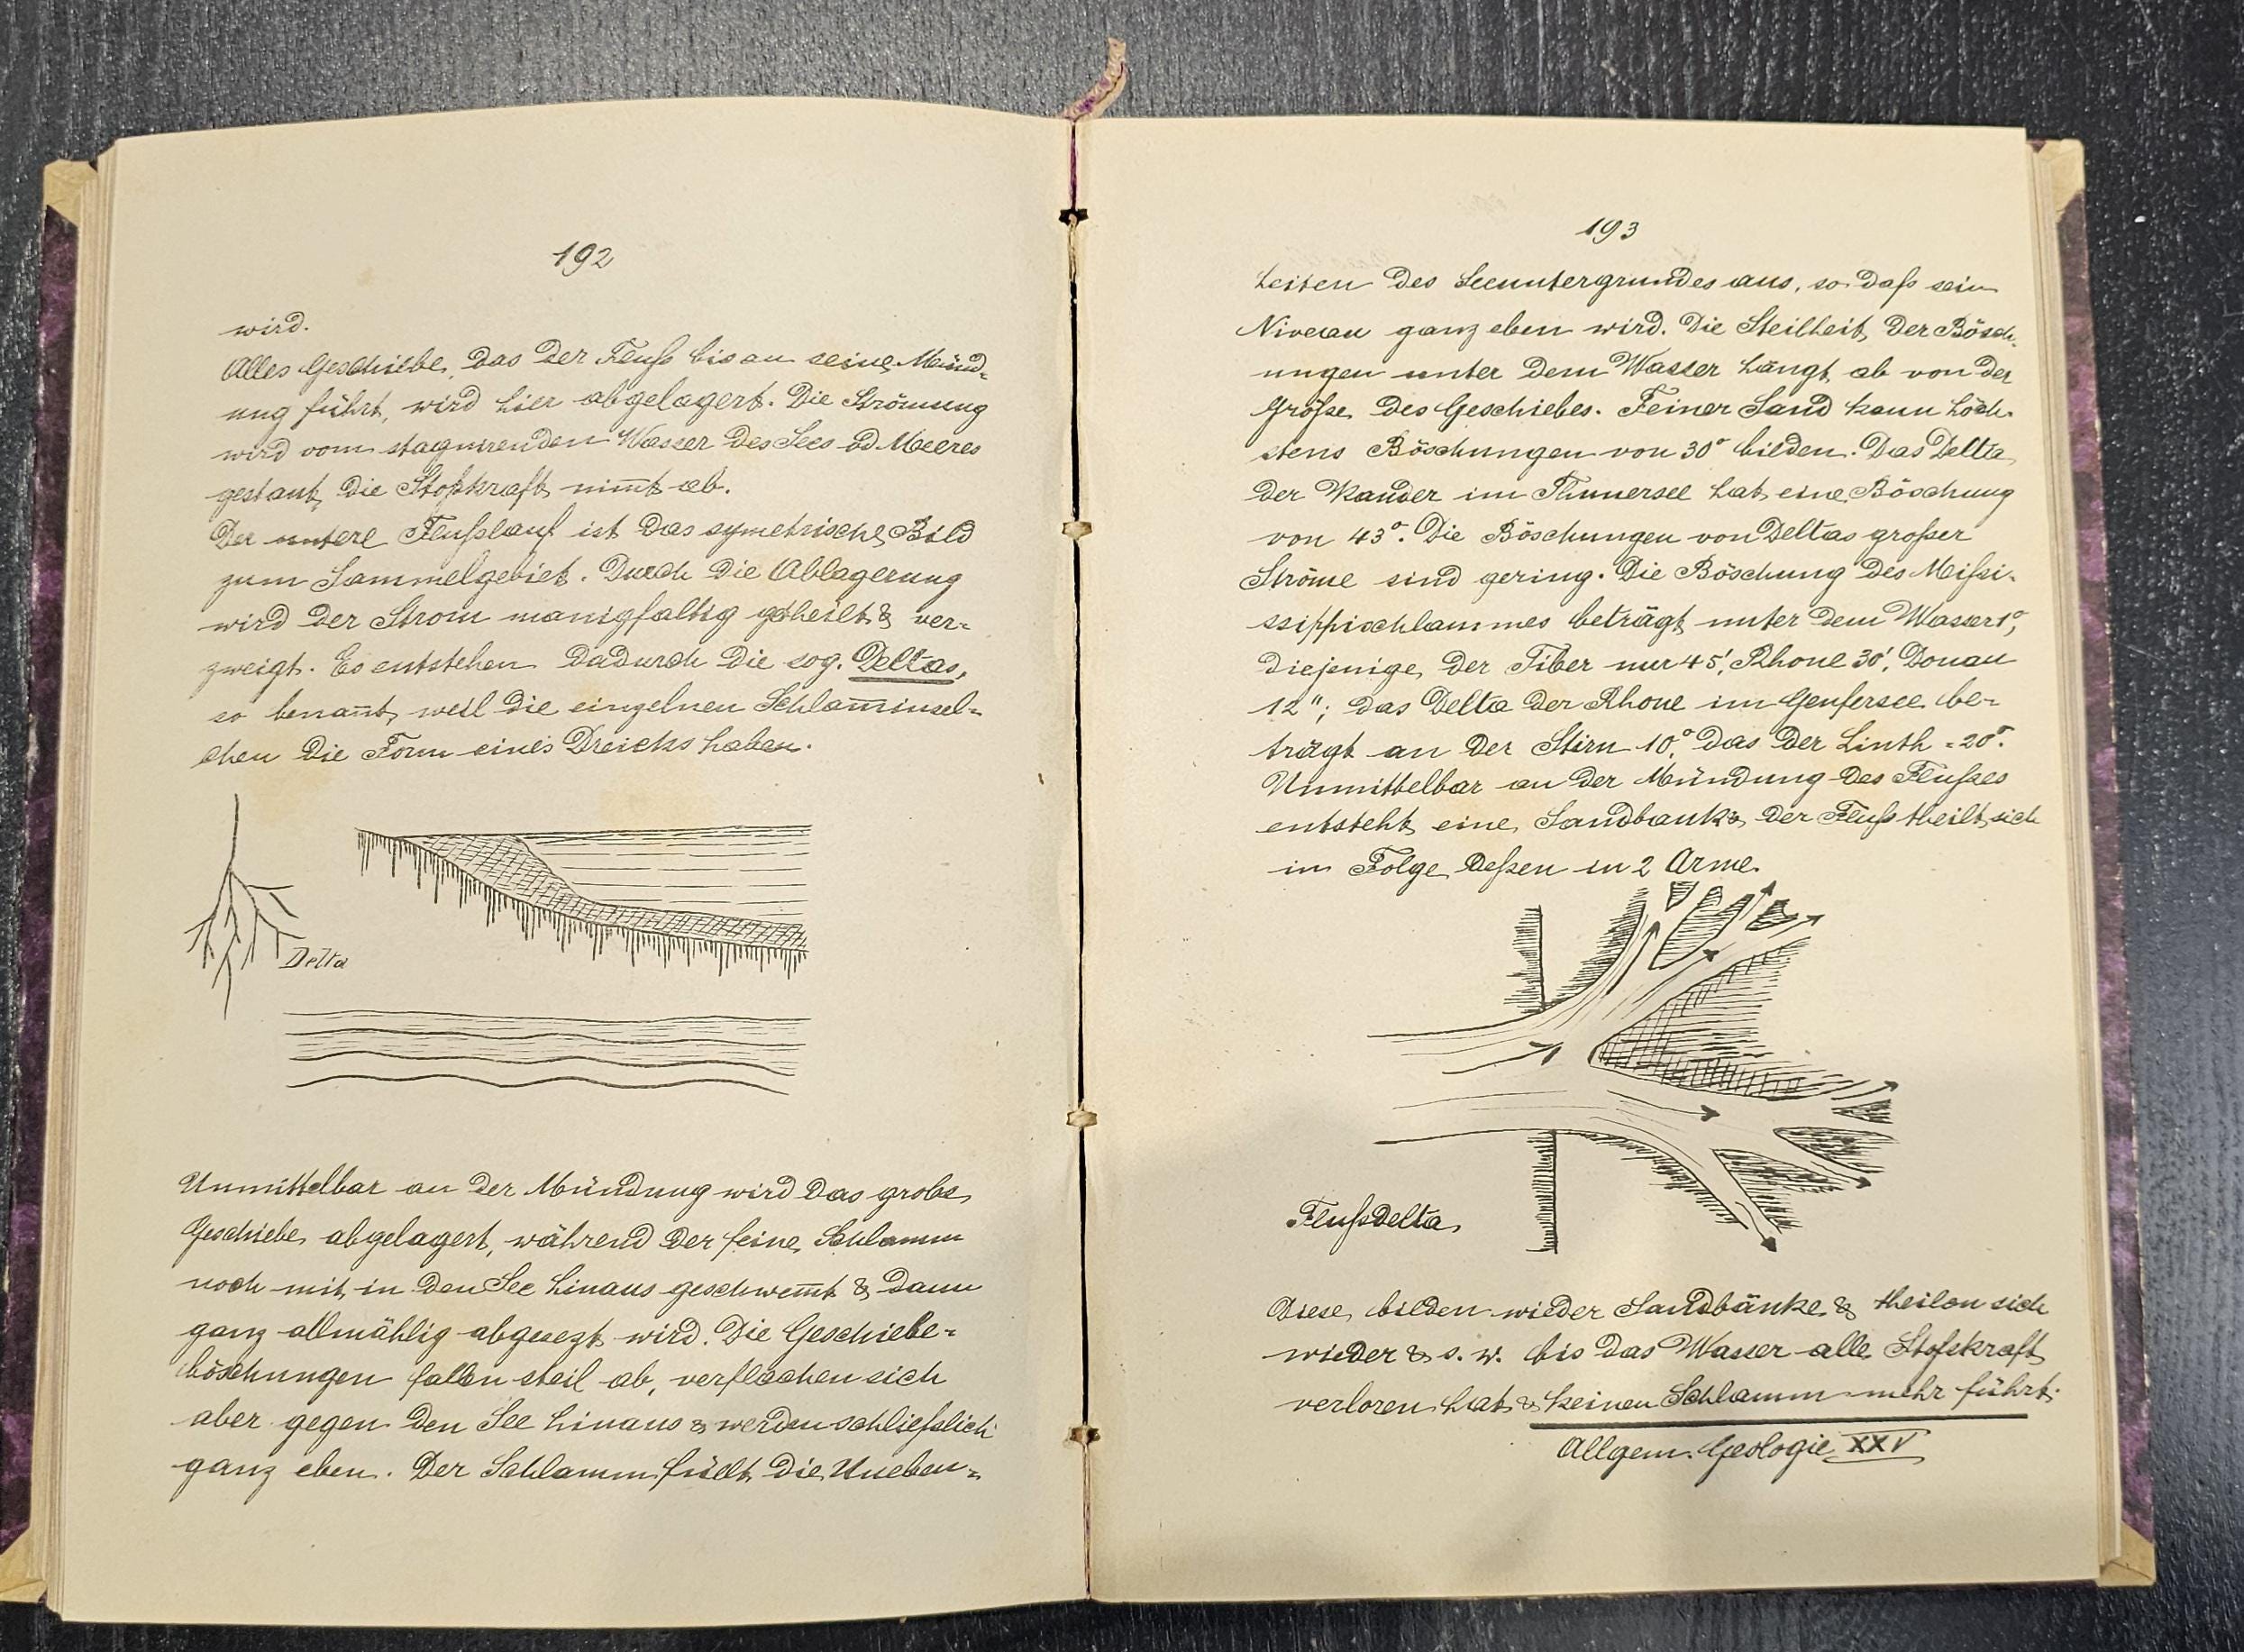 192
wird.
Alles Geschiebe, das der Fluß bis an seine Münd-
ung führt, wird hier abgelagert. Die Strömung
wird vom stagnirenden Wasser des Sees od Meeres
gestaut, die Stoßkraft nim̄t ab.
Der untere Flußlauf ist das symetrische Bild
zum Sammelgebiet. Durch die Ablagerung
wird der Strom manigfaltig getheilt & ver-
zweigt. Es entstehen dadurch die sog. Deltas,
so benan̄t, weil die einzelnen Schlam̄insel-
chen die Form eines Dreieks haben.
Delta
Unmittelbar an der Mündung wird das grobe
Geschiebe abgelagert, während der feine Schlamm
noch mit in den See hinaus geschwem̄t & dann
ganz allmählig abgesezt wird. Die Geschiebe-
böschungen fallen steil ab, verflachen sich
aber gegen den See hinaus & werden schließlich
ganz eben. Der Schlamm füllt die Uneben-
193
heiten des Seeuntergrundes aus, so daß sein
Niveau ganz eben wird. Die Steilheit der Bösch-
ungen unter dem Wasser hängt ab von der
Größe des Geschiebes. Feiner Sand kann höch-
stens Böschungen von 30° bilden. Das Delta
der Kander im Thunersee hat eine Böschung
von 43°. Die Böschungen von Deltas großer
Ströme sind gering. Die Böschung des Mißi-
ssippischlammes beträgt unter dem Wasser 1°,
diejenige der Tiber nur 45', Rhone 30', Donau
12"; das Delta der Rhone im Genfersee be-
trägt an der Stirn 10°, das der Linth = 20°.
Unmittelbar an der Mündung des Flußes
entsteht eine Sandbank & der Fluß theilt sich
in Folge deßen in 2 Arme.
Flußdelta
Diese bilden wieder Sandbänke & theilen sich
wieder & s. w. bis das Wasser alle Stoßkraft
verloren hat & keinen Schlamm mehr führt.
Allgem. Geologie XXV